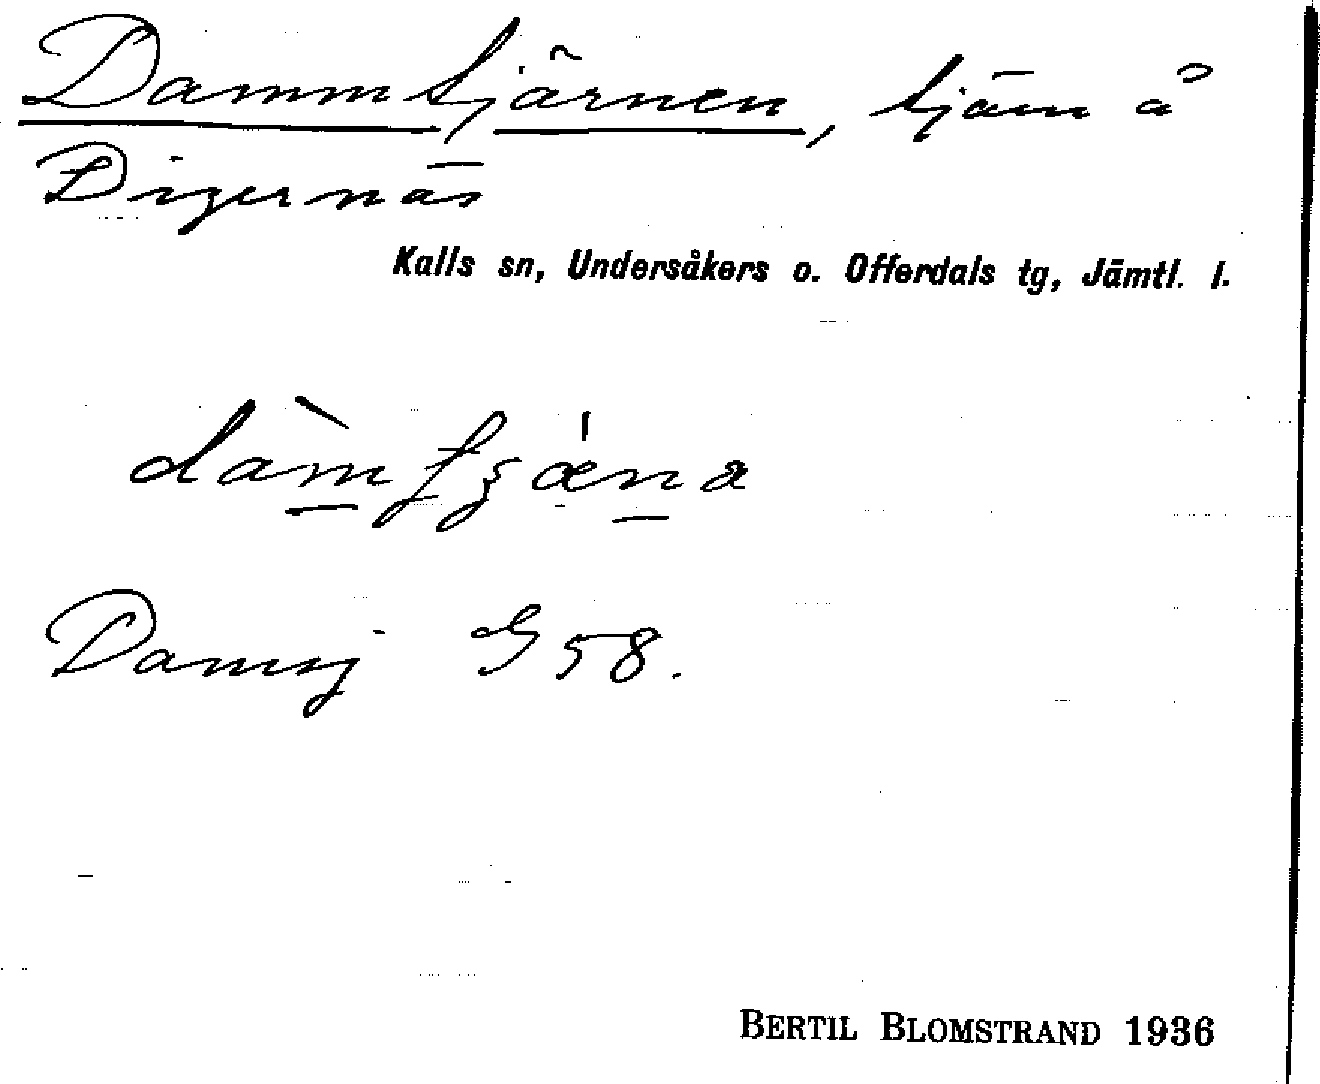 Dammtjärnen, tjärn å
Digernäs
Kalls sn, Undersåkers o. Offerdals tg, Jämtl. l.
G 58.
BERTIL BLOMSTRAND 1936